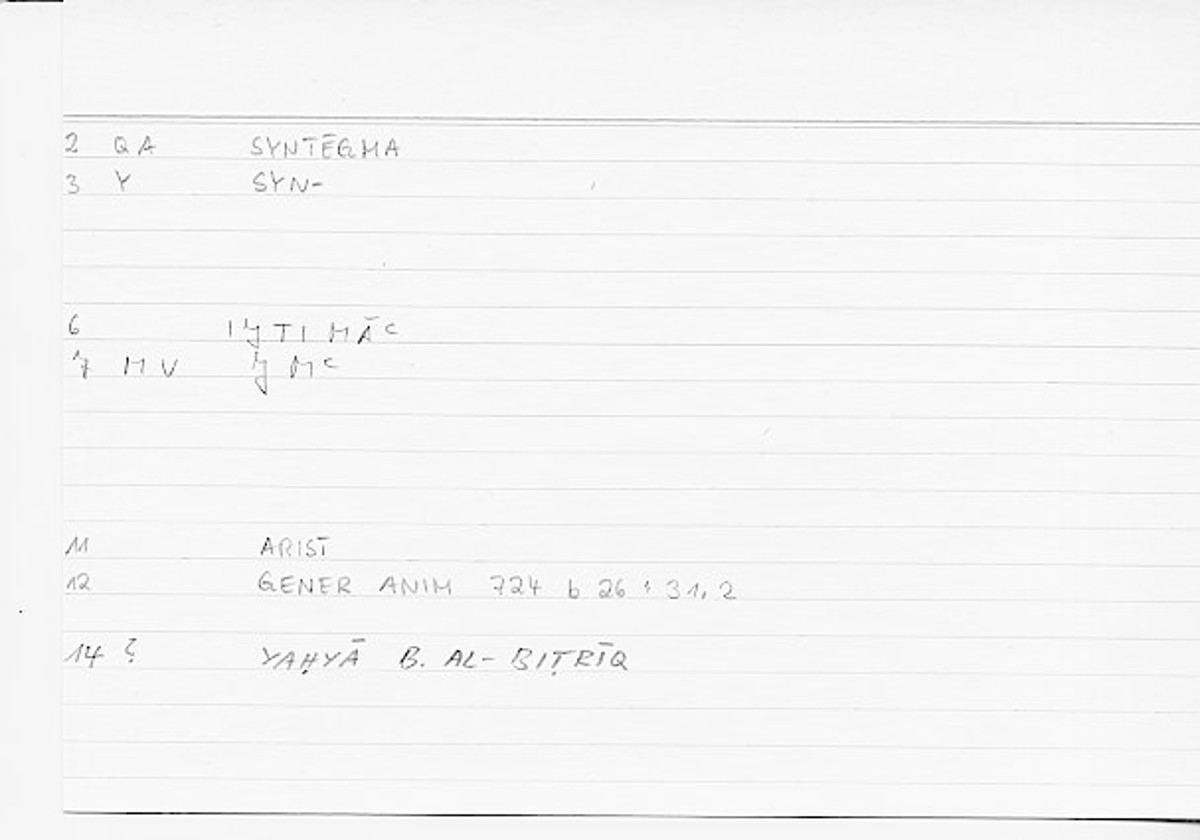 2 QA SYNTĒGMA
3 Y SYN-
6 IǦTIMĀʿ
7 MV ǦMʿ
11 ARIST
12 GENER ANIM 724 b 26 : 31,2
14 ? YAḤYĀ B. AL-BIṬRĪQ